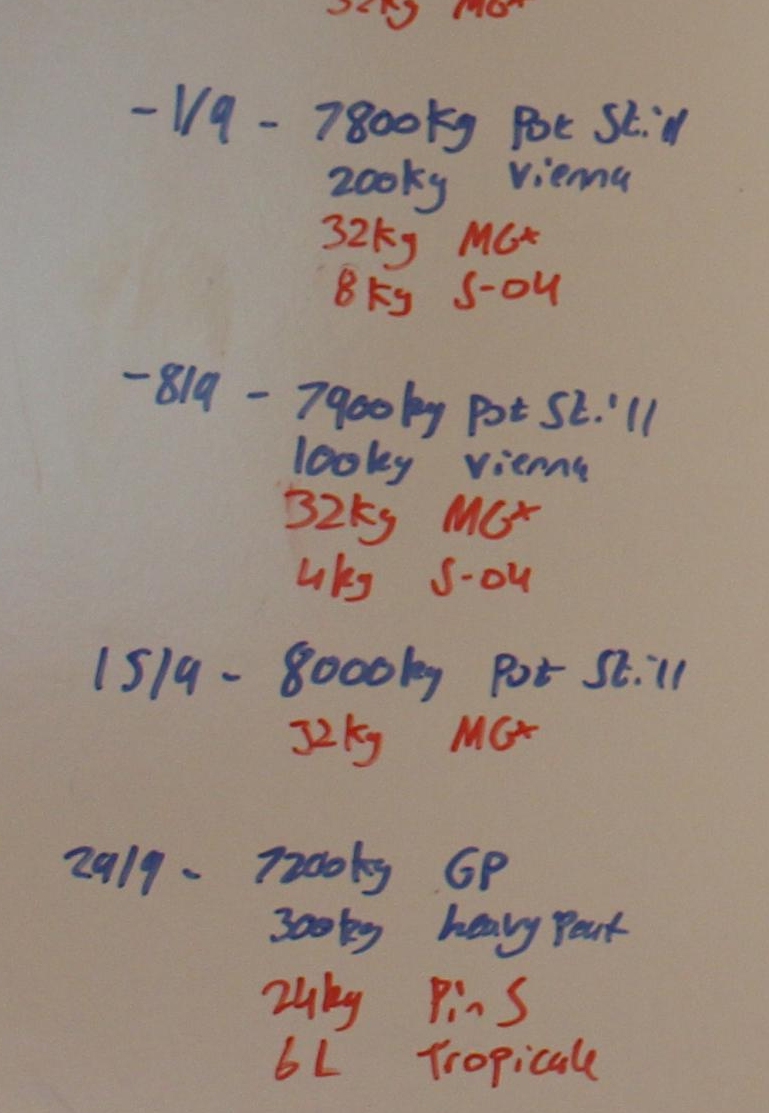 32kg MG+
-1/9 - 7800kg Pot Still
200kg Vienna
32kg MG+
8kg S-04
-8/9 - 7900kg Pot Still
100kg Vienna
32kg MG+
4kg S-04
15/9 - 8000kg Pot Still
32kg MG+
29/9 - 7200kg GP
300kg heavy Peat
24kg Pin S
6L Tropicale